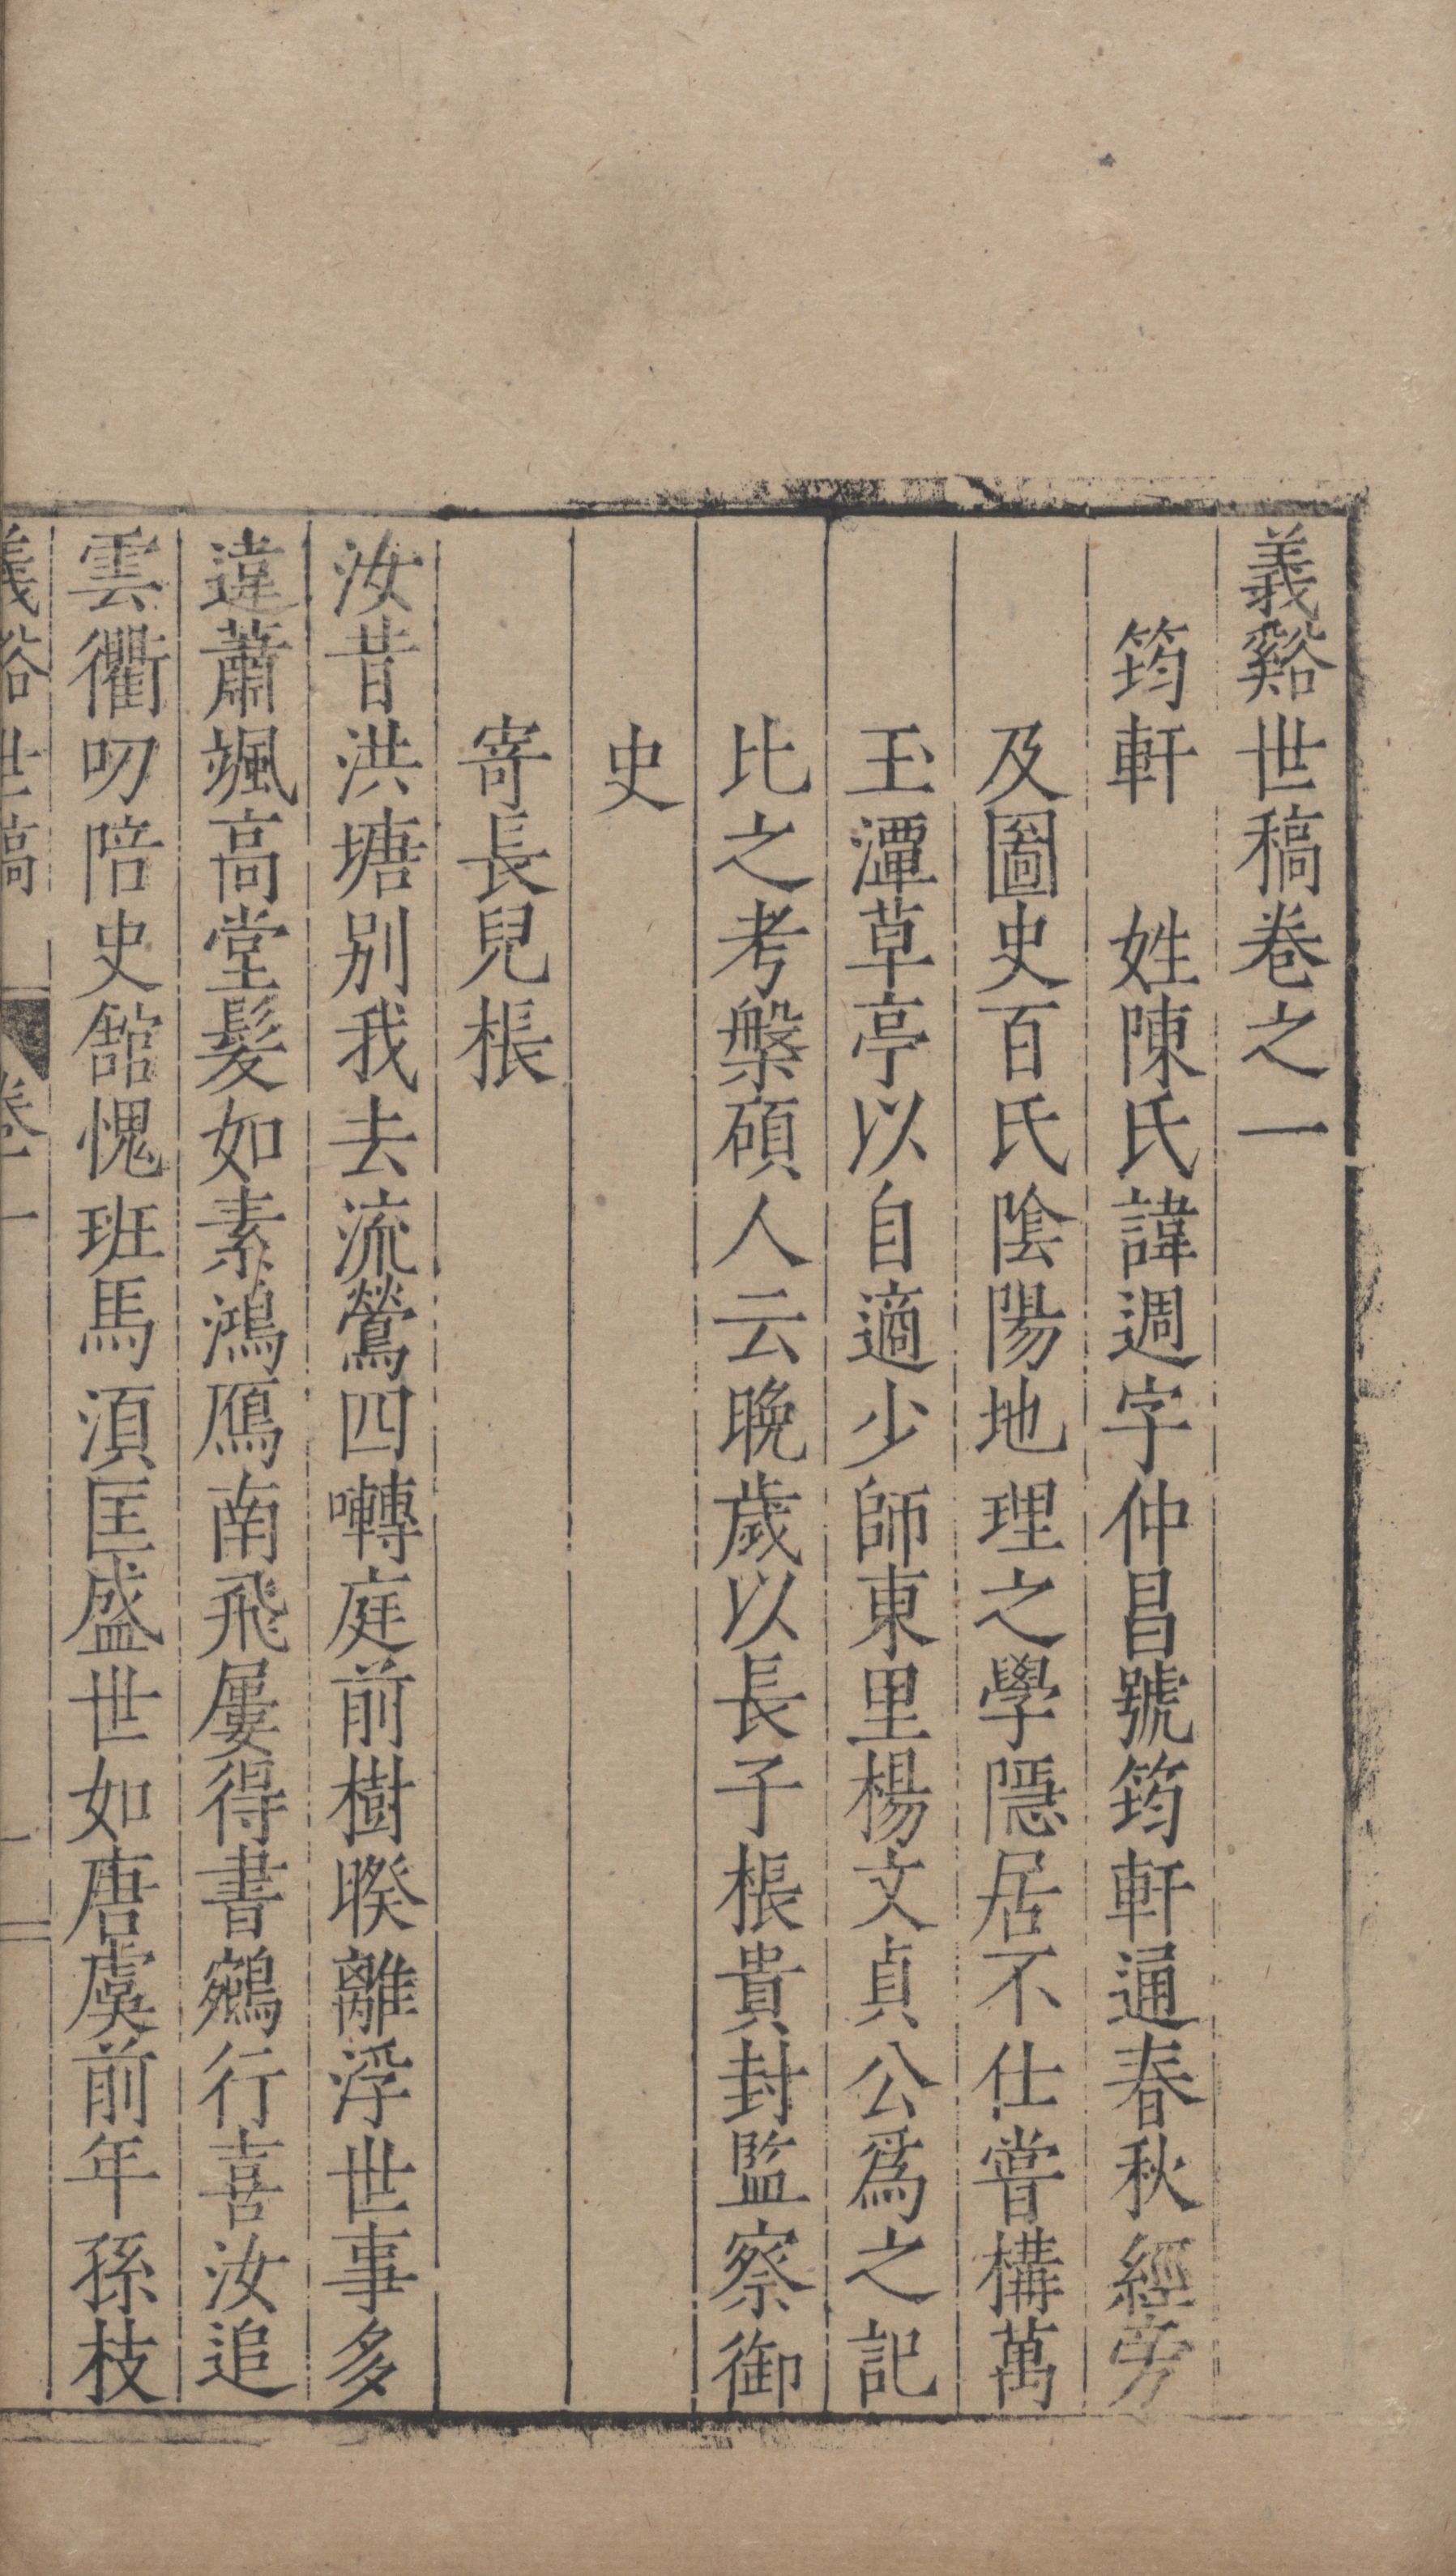 義谿世稿卷之一
筠軒　姓陳氏諱週字仲昌號筠軒通春秋經旁
及圖史百氏陰陽地理之學隱居不仕嘗構萬
玉潭草亭以自適少師東里楊文貞公爲之記
比之考槃碩人云晚歲以長子棖貴封監察御
史
寄長兒棖
汝昔洪塘別我去流鶯四囀庭前樹暌離浮世事多
違蕭颯高堂髮如素鴻鴈南飛屢得書鵷行喜汝追
雲衢叨陪史舘愧班馬湏匡盛世如唐虞前年孫枝
義谿世稿　卷一　一